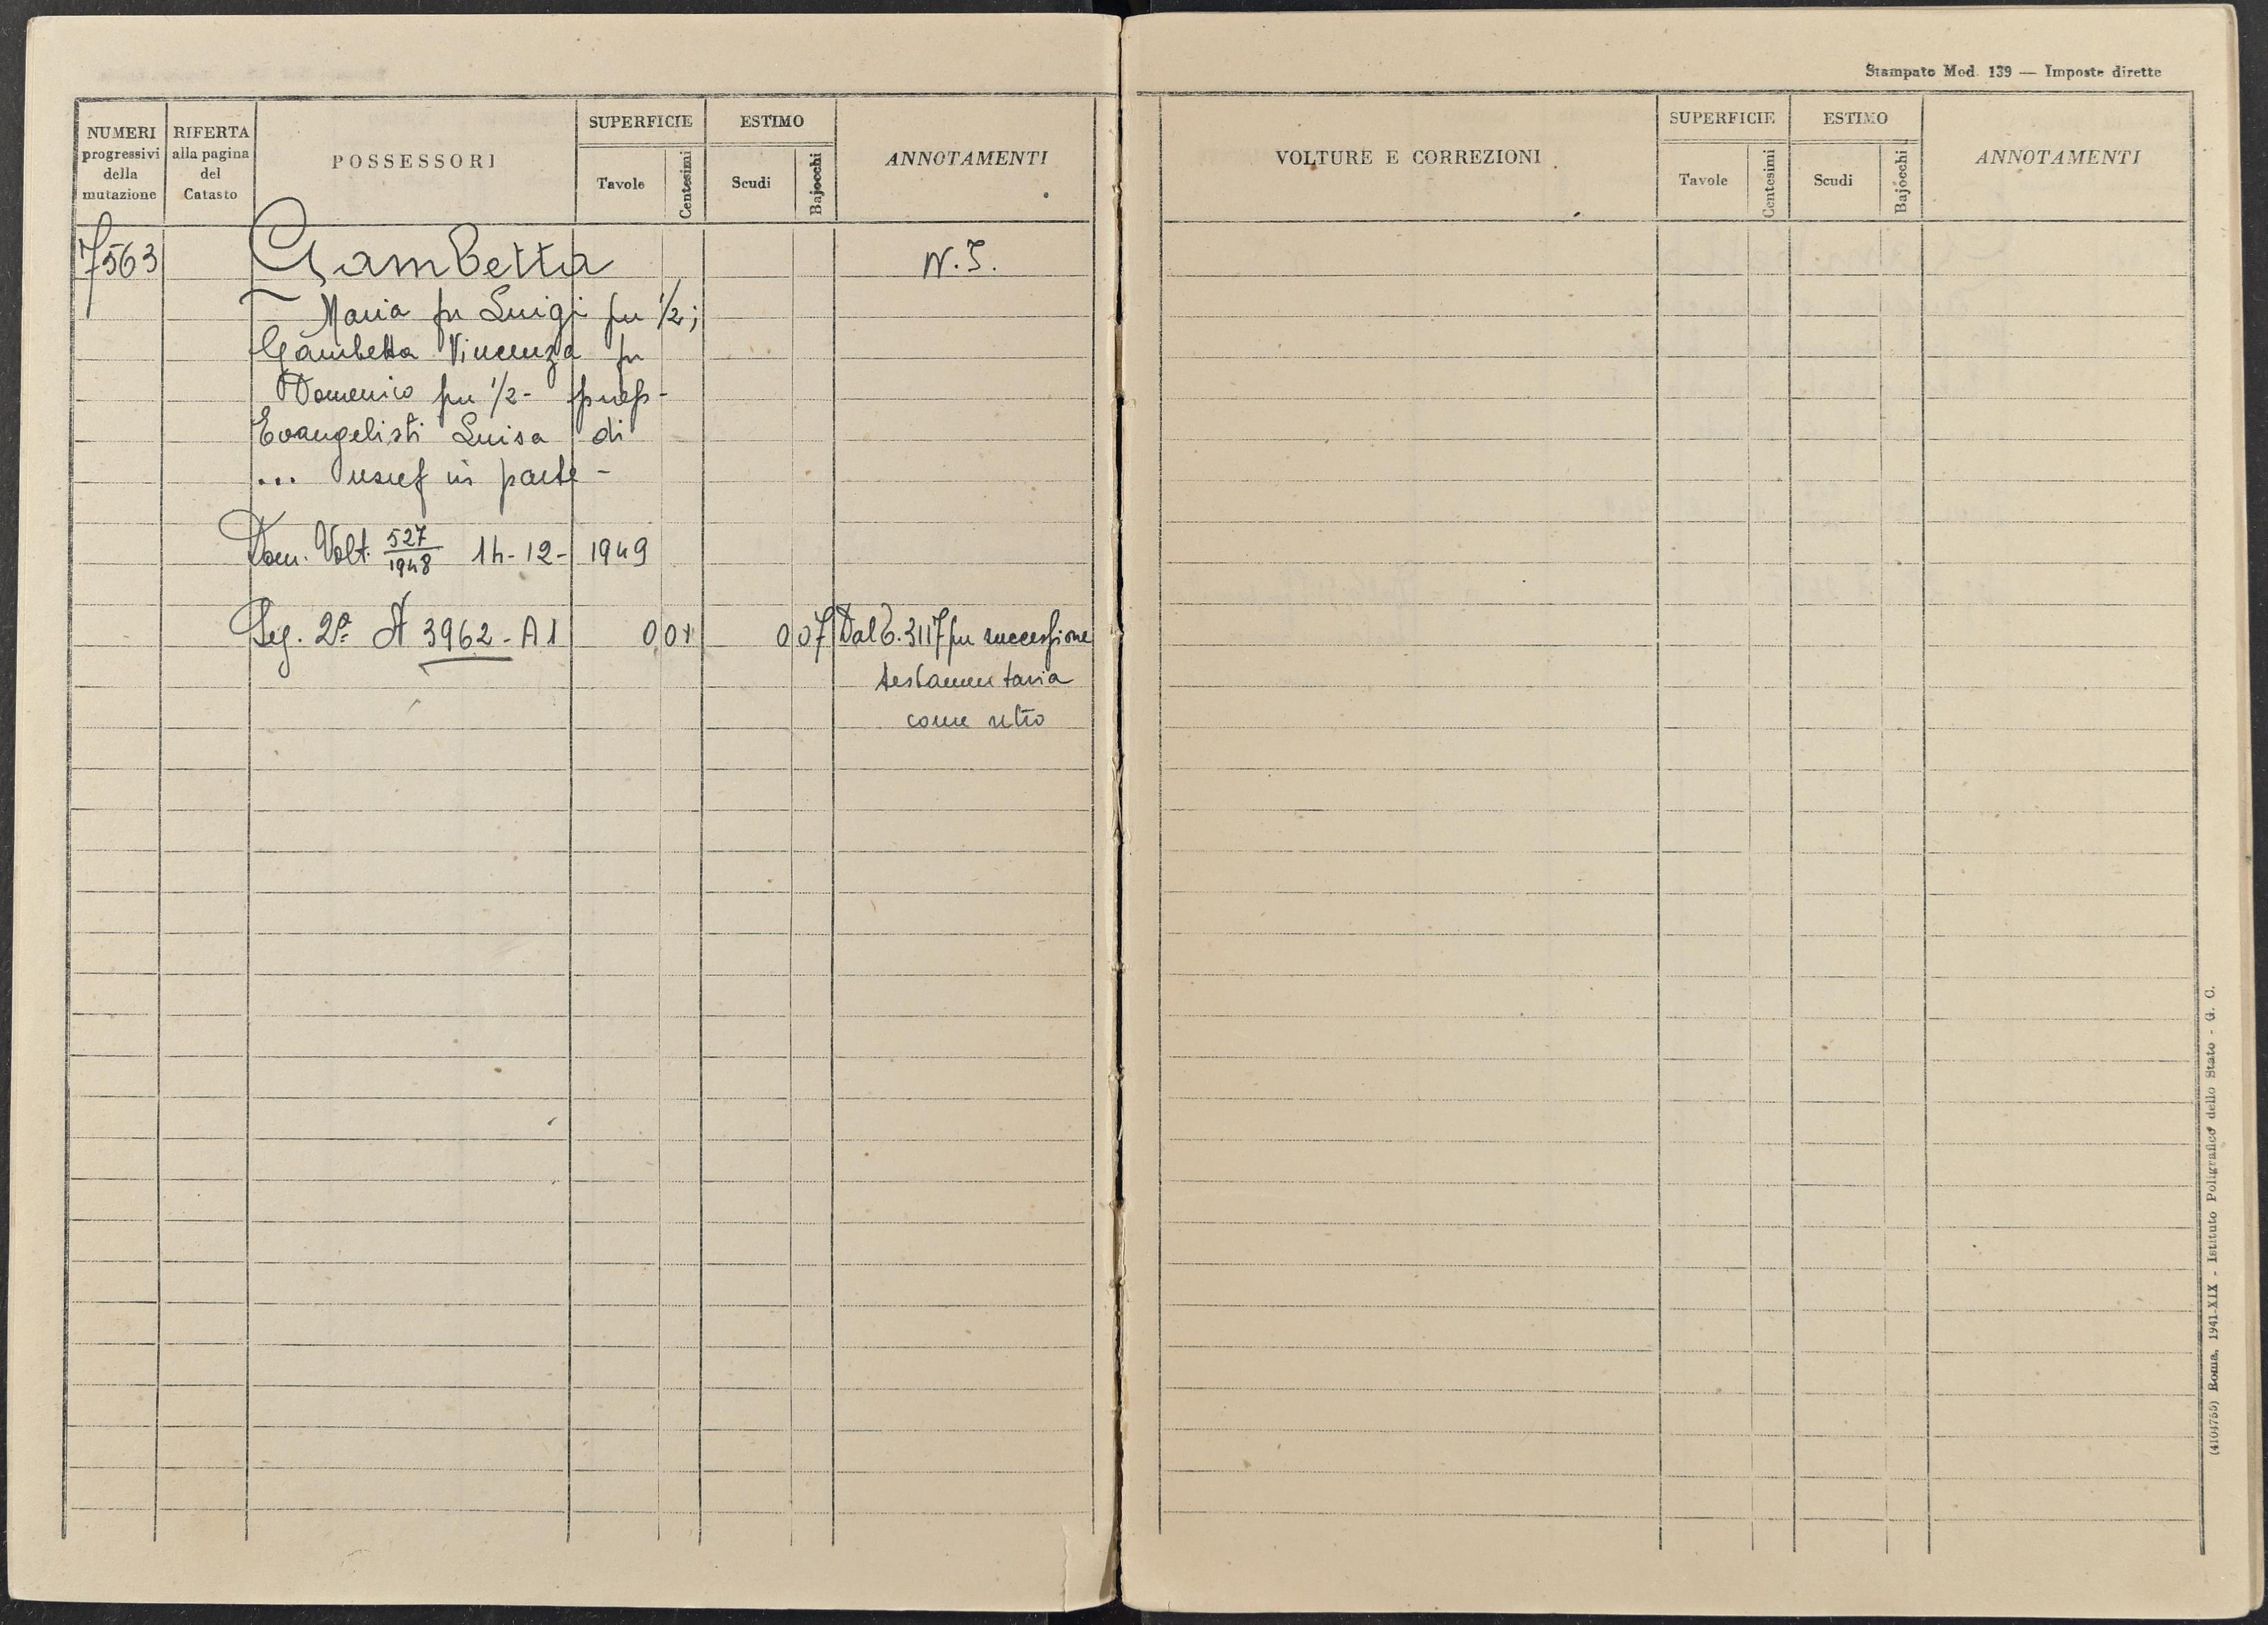 NUMERI progressivi della mutazione
RIFERTA alla pagina del Catasto
POSSESSORI
SUPERFICIE
Tavole
Centesimi
ESTIMO
Scudi
Bajocchi
ANNOTAMENTI
7563 Gambetta N.I.
Maria fu Luigi per 1/2;
Gambetta Vincenza fu
Domenico per 1/2 -
Evangelisti Luisa di
... usuf in parte -
Dom. Volt. 527/1948 14-12-1949
Seg. 2ª A 3962 - A1 0 01 0 07 Dal C. 3117 per successione
testamentaria
come retro
Stampato Mod. 139 — Imposte dirette
VOLTURE E CORREZIONI
SUPERFICIE
Tavole
Centesimi
ESTIMO
Scudi
Bajocchi
ANNOTAMENTI
(4104755) Roma, 1941-XIX - Istituto Poligrafico dello Stato - G. C.